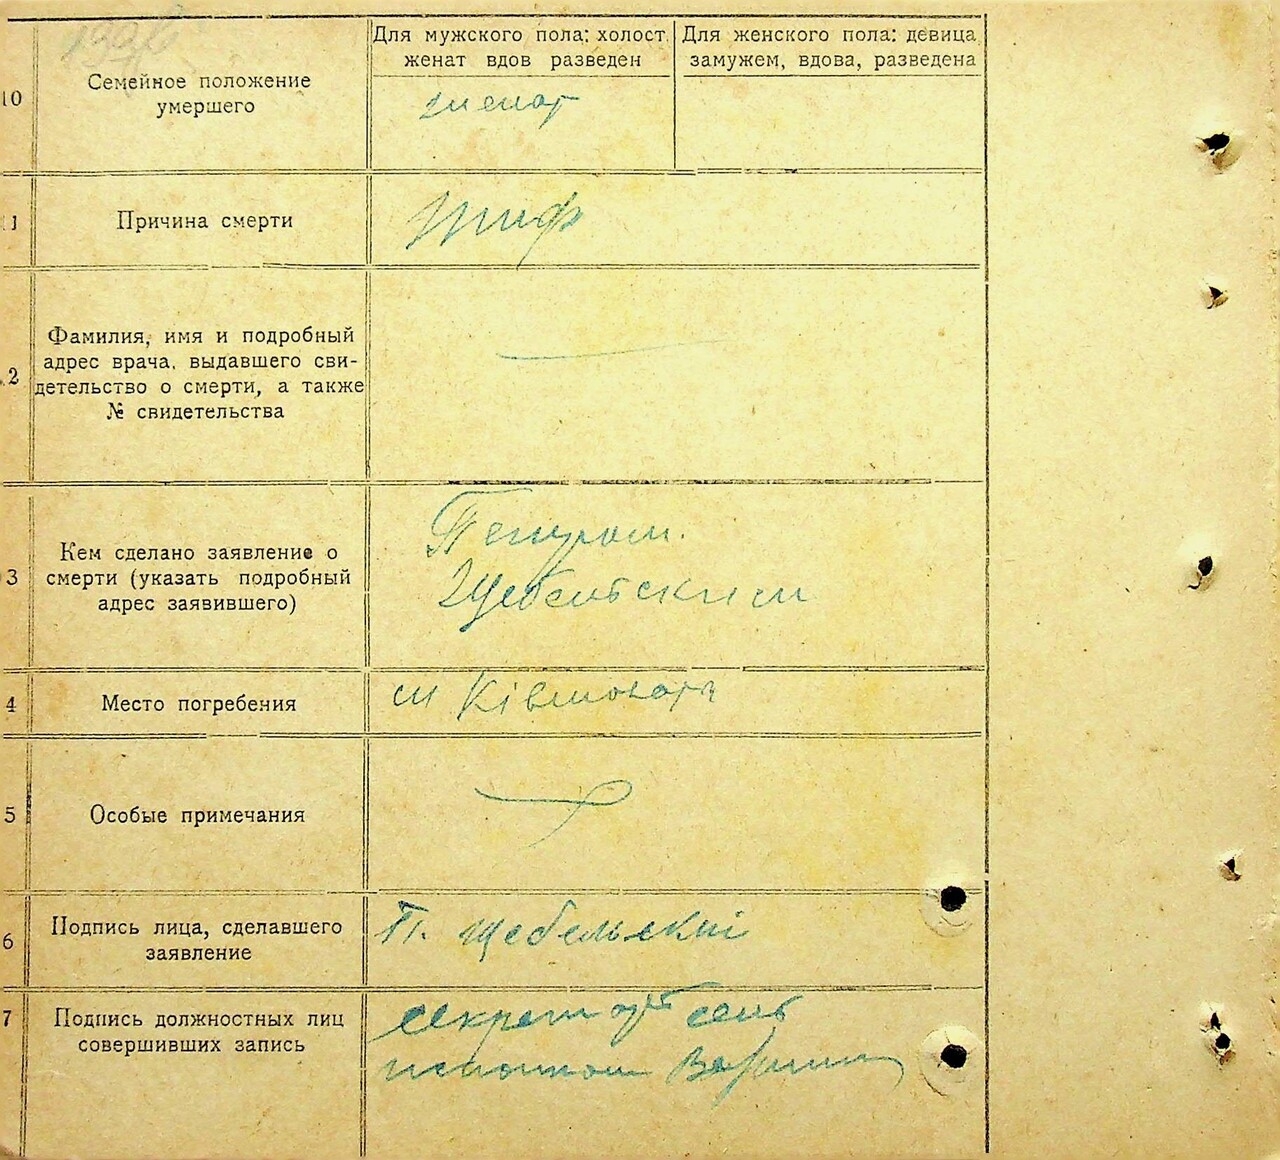 Для мужского пола: холост.
женат вдов разведен
Для женского пола: девица
замужем, вдова, разведена
10
Семейное положение
умершего
женат
11
Причина смерти
тиф
2
Фамилия, имя и подробный
адрес врача, выдавшего сви-
детельство о смерти, а также
№ свидетельства
3
Кем сделано заявление о
смерти (указать подробный
адрес заявившего)
Петром.
Щебельским
4
Место погребения
5
Особые примечания
6
Подпись лица, сделавшего
заявление
П. Щебельскиі
7
Подпись должностных лиц
совершивших запись
секретарь сель